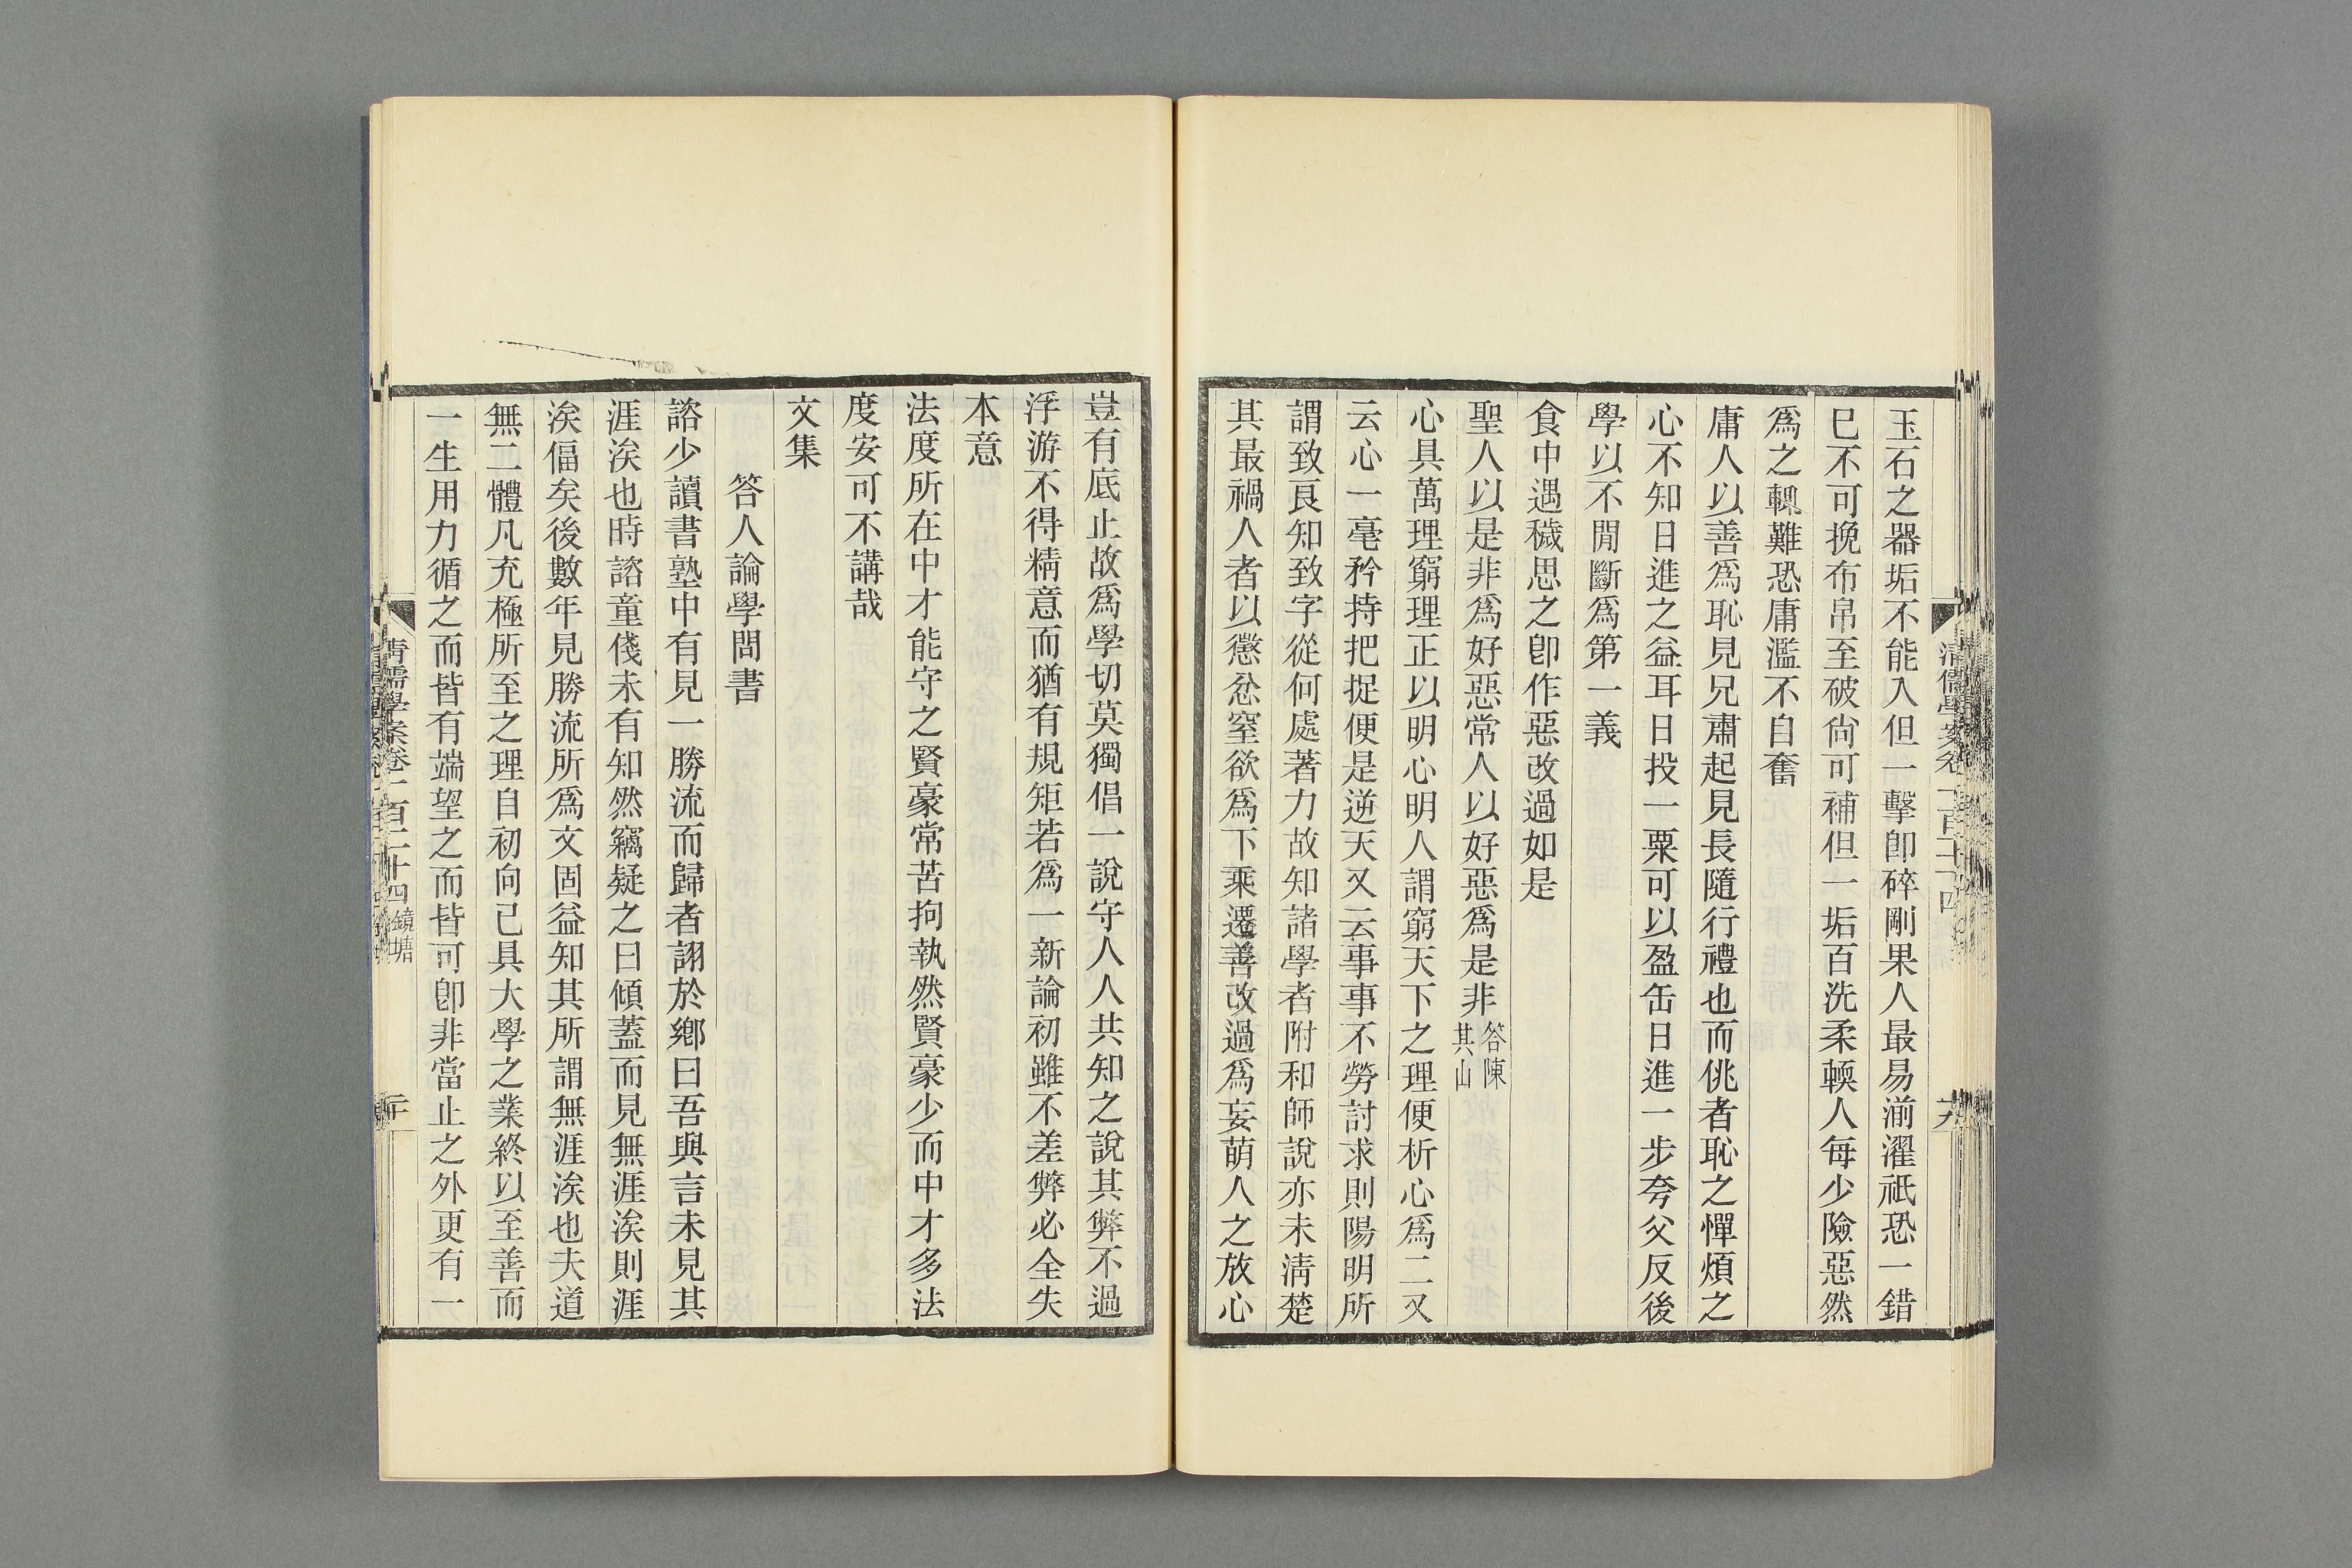 玉石之器垢不能入但一擊卽碎剛果人最易湔濯祇恐一錯
巳不可挽布帛至破尙可補但一垢百洗柔輭人每少險惡然
爲之輒難恐庸濫不自奮
庸人以善爲恥見兄肅起見長隨行禮也而佻者恥之憚煩之
心不知日進之益耳日投一粟可以盈缶日進一步夸父反後
學以不閒斷爲第一義
食中遇穢思之卽作惡改過如是
聖人以是非爲好惡常人以好惡爲是非答陳其山
心具萬理窮理正以明心明人謂窮天下之理便析心爲二又
云心一毫矜持把捉便是逆天又云事事不勞討求則陽明所
謂致良知致字從何處著力故知諸學者附和師說亦未淸楚
其最禍人者以懲忿窒欲爲下乘遷善改過爲妄萌人之放心
淸儒學案卷二百二十四
十九
豈有底止故爲學切莫獨倡一說守人人共知之說其弊不過
浮游不得精意而猶有規矩若爲一新論初雖不差弊必全失
本意
法度所在中才能守之賢豪常苦拘執然賢豪少而中才多法
度安可不講哉
文集
答人論學問書
諮少讀書塾中有見一勝流而歸者詡於鄉曰吾與言未見其
涯涘也時諮童俴未有知然竊疑之曰傾蓋而見無涯涘則涯
涘偪矣後數年見勝流所爲文固益知其所謂無涯涘也夫道
無二體凡充極所至之理自初向己具大學之業終以至善而
一生用力循之而皆有端望之而皆可卽非當止之外更有一
淸儒學案卷二百二十四 鏡塘
二十